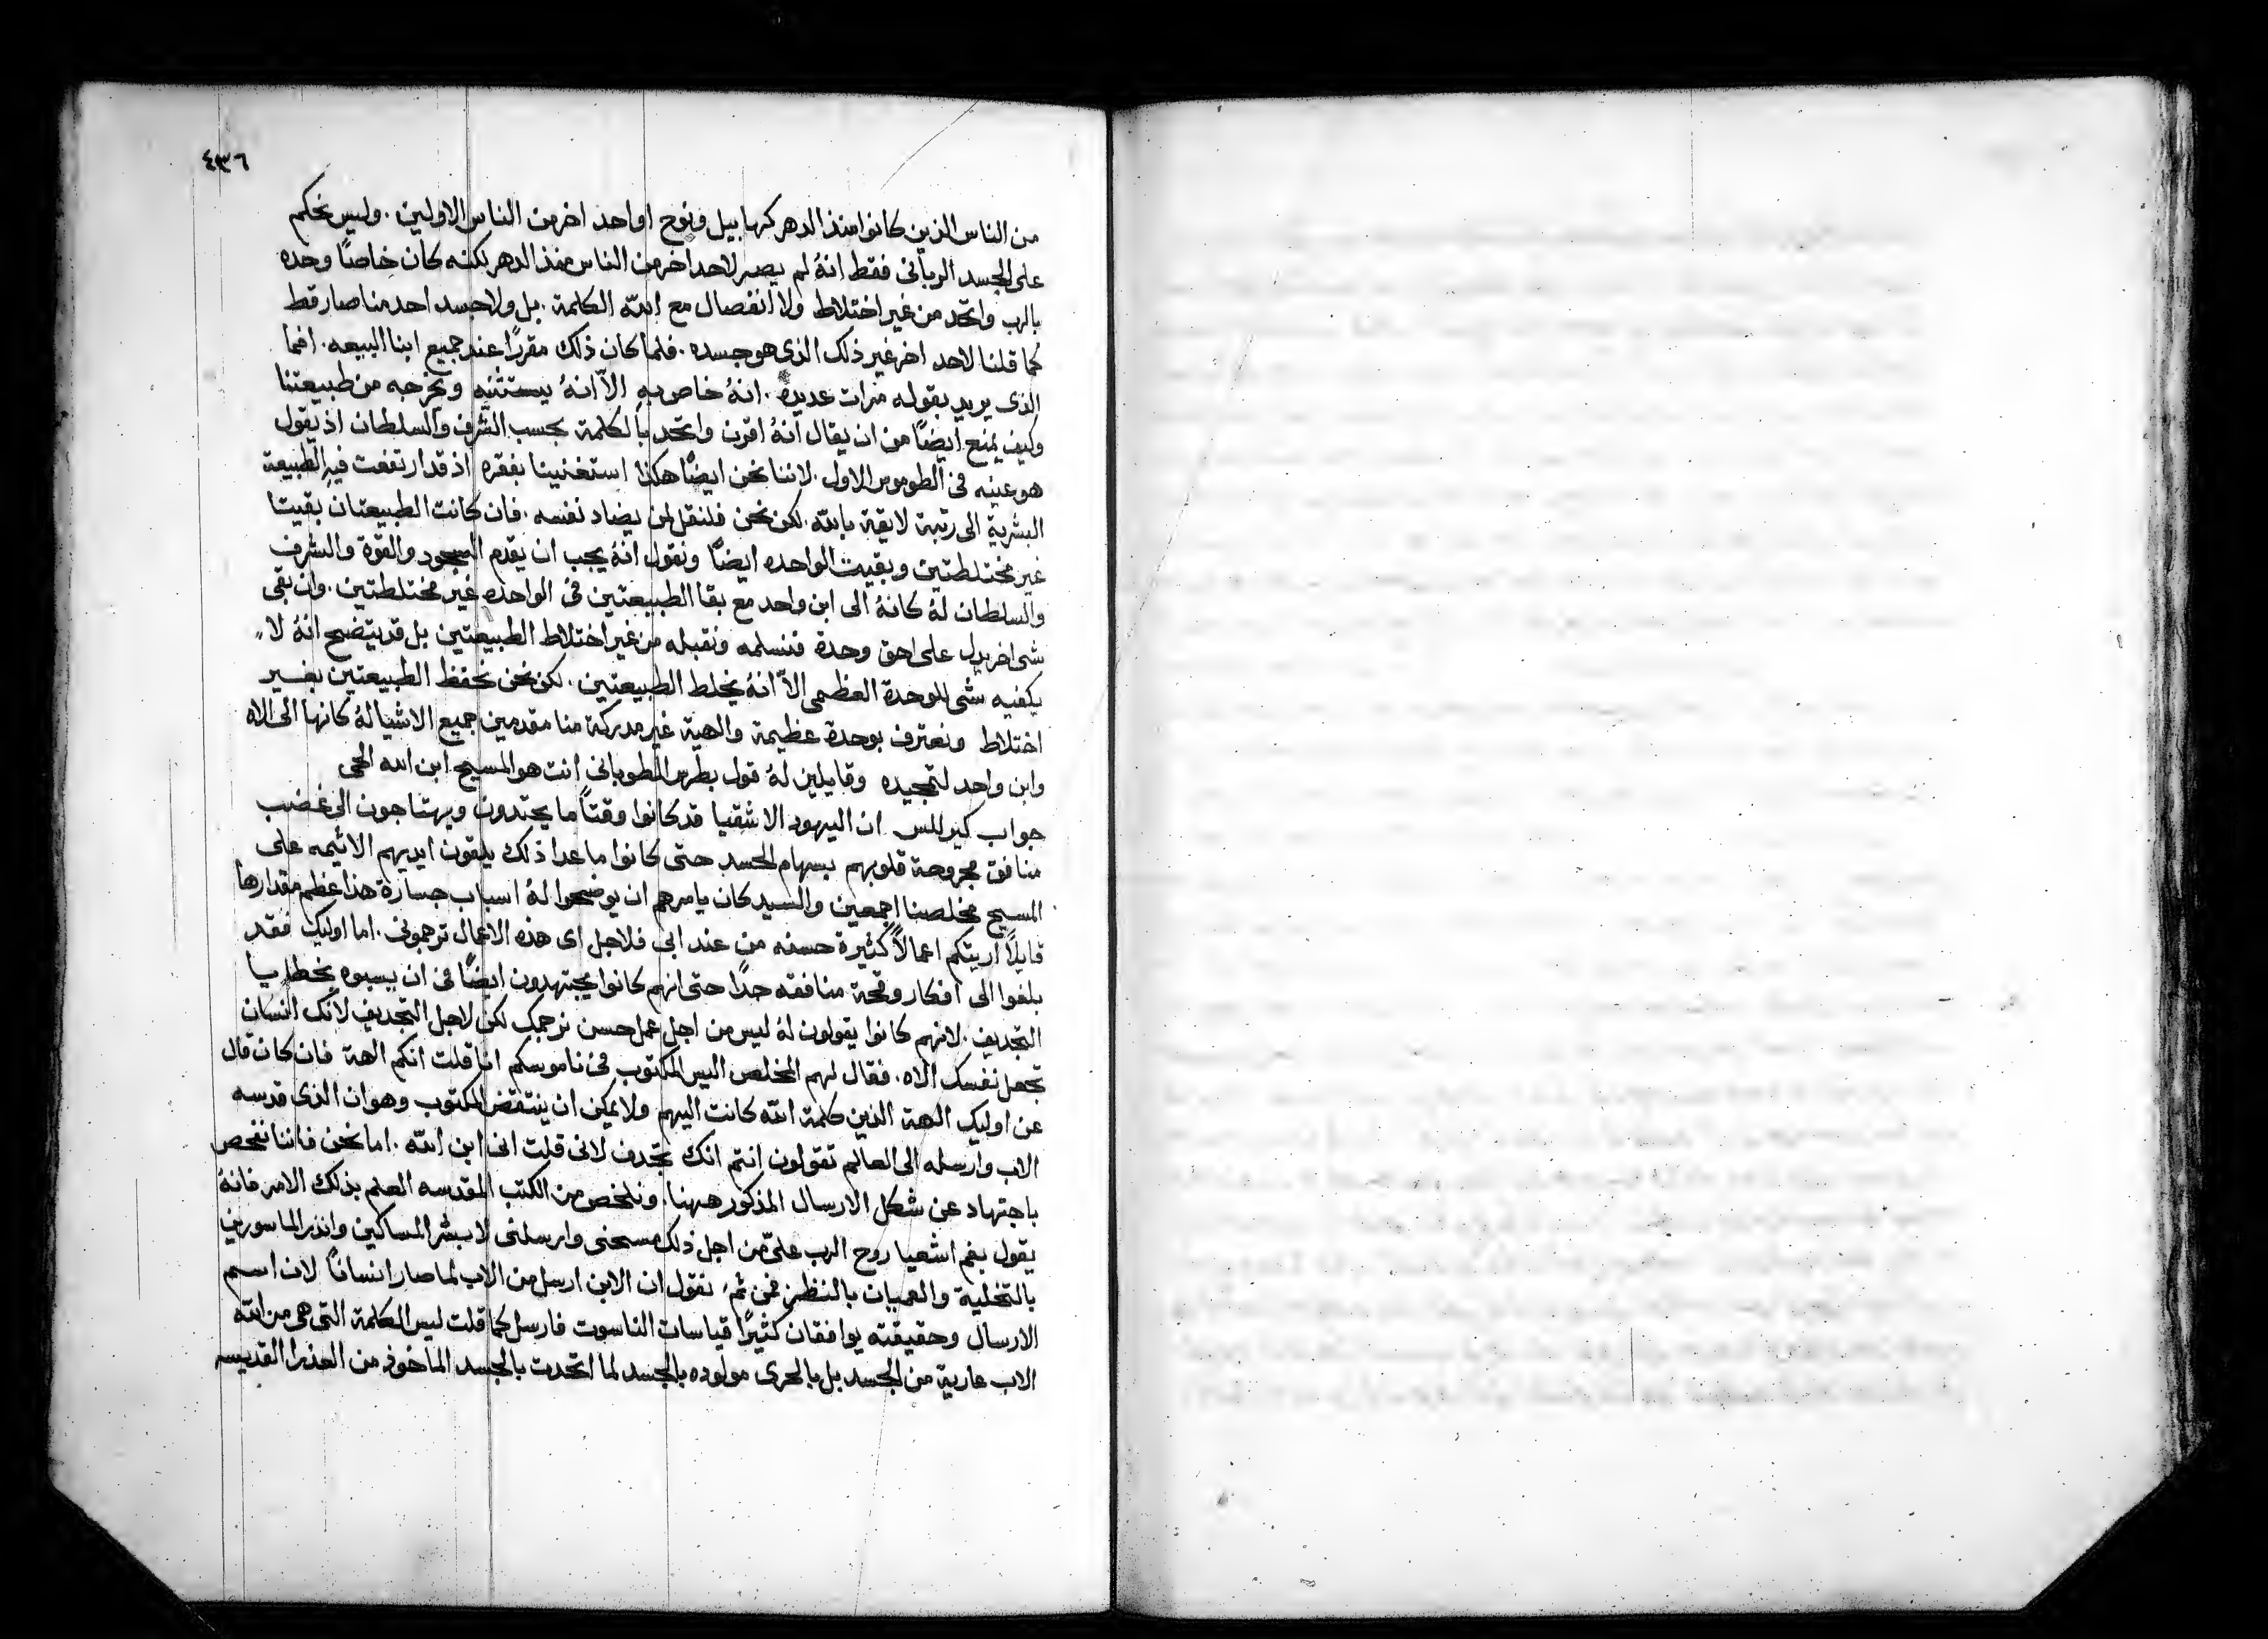 ٤٣٦
من الناس الذين كانوا منذ الدهر كهابيل ونوح او احد اخر من الناس الاولين . وليس نحكم
على الجسد الرباني فقط انهُ لم يصر لاحد اخر من الناس منذ الدهر لكنه كان خاصًا وحده
بالرب واتحد من غير اختلاط ولا انفصال مع الله الكلمة . بل ولا جسد احد منا صار قط
كما قلنا لاحد اخر غير ذلك الذى هو جسده . فلما كان ذلك مقررًا عند جميع ابنا البيعه . افما
الذى يريد بقوله مرات عديدة . انهُ خاص به الاّ انهُ يستثنيه ويخرجه من طبيعتنا
وكيف يمنع ايضًا من ان يقال انهُ اقرن واتحد بالكلمة بحسب الشرف والسلطان اذ يقول
هو عينه فى الطومس الاول . لاننا نحن ايضًا هكذا استغنينا بفقره اذ قد ارتفعت فيهِ الطبيعة
البشرية الى رتبة لايقة بالله . لكن نحن فلنقل لمن يضاد نفسه . فان كانت الطبيعتان بقيتا
غير مختلطتين وبقيت الواحده ايضًا ونقول انهُ يجب ان يقدم السجود والقوة والشرف
والسلطان لهُ كانهُ الى ابن واحد مع بقا الطبيعتين فى الواحده غير مختلطتين . وان بقى
شى اخر يدل على احق وحدة فنسلمه ونقبله من غير اختلاط الطبيعتين بل قد يتضح انهُ لا
يكفيه شى للوحدة العظمى الاّ انهُ يخلط الطبيعتين . لكن نحن نحفظ الطبيعتين بغير
اختلاط ونعترف بوحدة عظيمة والهية غير مدركة منا مقدمين جميع الاشيا لهُ كانها الى الاه
وابن واحد لتمجيده وقايلين لهُ قول بطرس الطوباني انت هو المسيح ابن الله الحى
جواب كيرللس ان اليهود الاشقيا قد كانوا وقتًا ما يحتدون ويهتاجون الى غضب
منافق مجروحة قلوبهم بسهام الحسد حتى كانوا ما عدا ذلك يلقون ايديهم الاثيمه على
المسيح مخلصنا اجمعين والسيد كان يامرهم ان يوضحوا لهُ اسباب جسارة هذا عظم مقدارها
قايلاً اريتكم اعمالاً كثيرة حسنه من عند ابى فلاجل اى هذه الاعمال ترجموني . اما اوليك فقد
بلغوا الى افكار وقحة منافقه جدًا حتى انهم كانوا يجتهدون ايضًا فى ان يسبوه بخطايا
التجديف . لانهم كانوا يقولون لهُ ليس من اجل عمل حسن نرجمك لكن لاجل التجديف لانك انسان
تجعل نفسك الاه . فقال لهم المخلص اليس المكتوب فى ناموسكم انا قلت انكم الهة فان كان قال
عن اوليك الهة الذين كلمة الله كانت اليهم ولا يمكن ان ينتقض المكتوب وهو ان الذى قدسه
الاب وارسله الى العالم تقولون انتم انك تجدف لانى قلت انى ابن الله . اما نحن فاننا نفحص
باجتهاد عن شكل الارسال المذكور ههنا . ونلخص من الكتب المقدسه العلم بذلك الامر فانهُ
يقول بفم اشعيا روح الرب علىّ من اجل ذلك مسحنى وارسلنى لابشر المساكين وانذر الماسورين
بالتخلية والعميان بالنظر فمن ثمَ نقول ان الابن ارسل من الاب لما صار انسانًا لان اسم
الارسال وحقيقته يوافقان كثيرًا قياسات الناسوت فارسل كما قلت ليس الكلمة التى هى من الله
الاب عارية من الجسد بل بالحرى مولوده بالجسد لما اتحدت بالجسد الماخوذ من العذرا القديسه